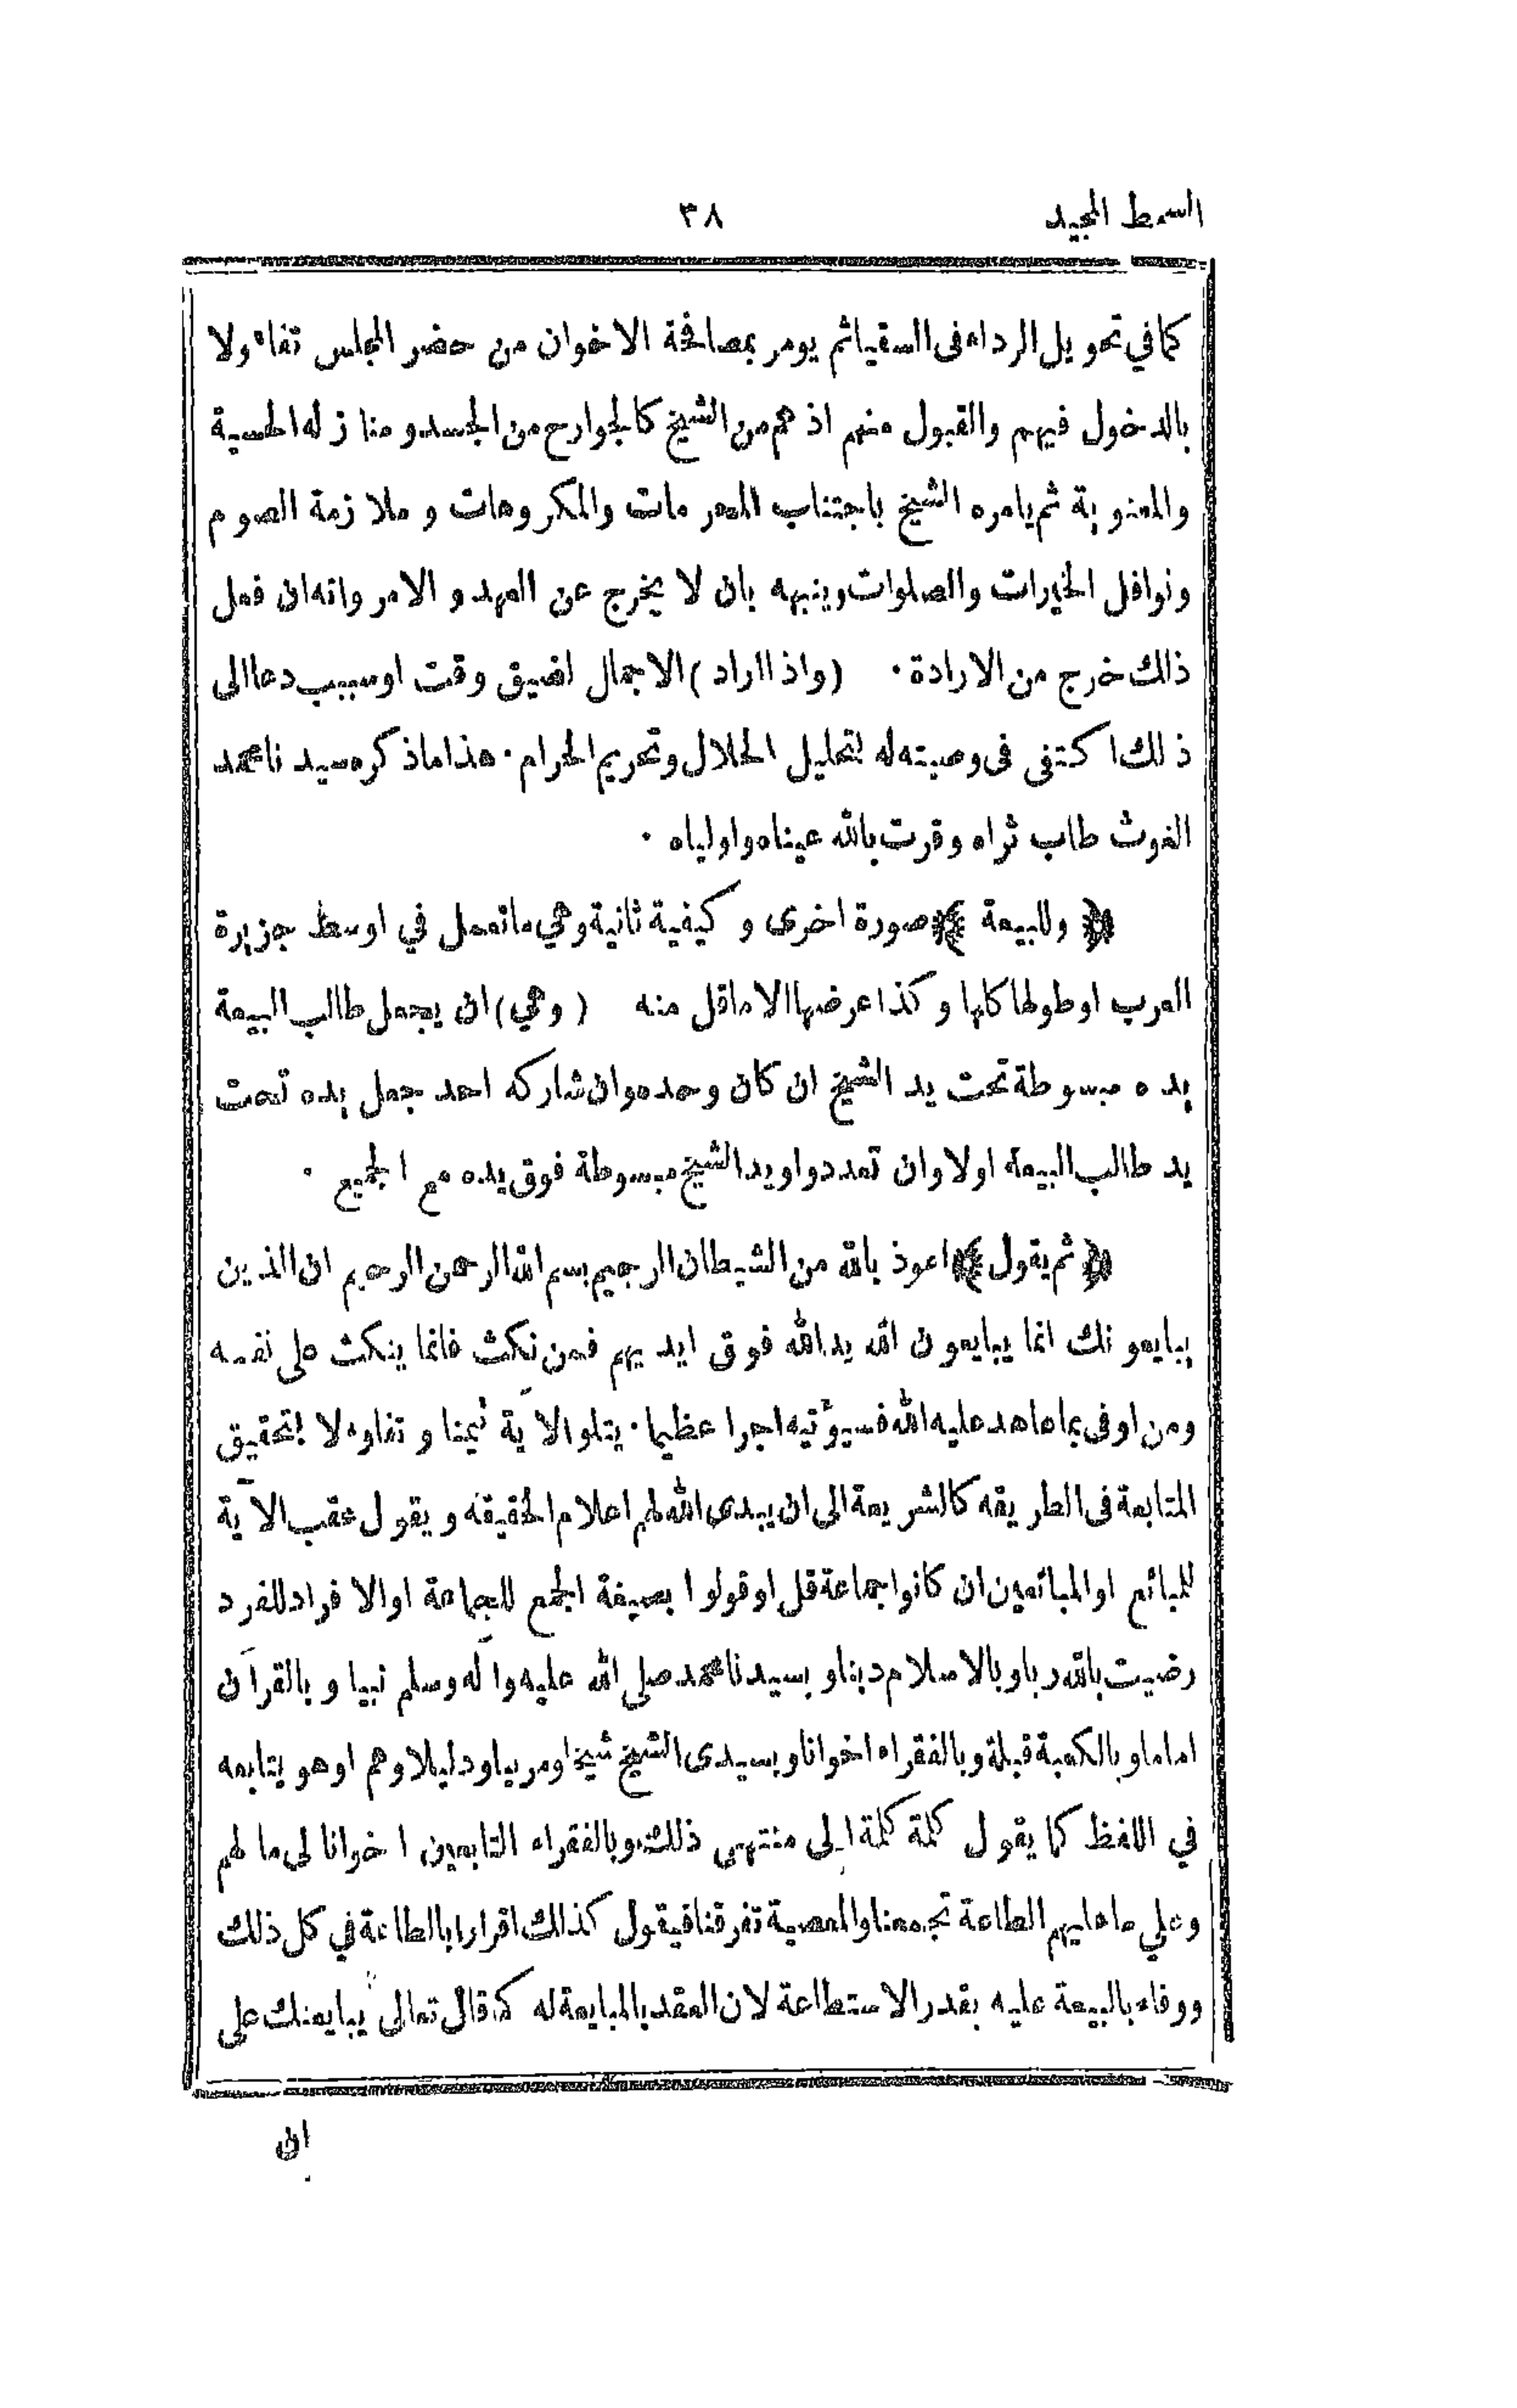 السمط المجيد
٣٨
كما في تحويل الرداء فى السقيا ثم يومر بمصافحة الاخوان من حضر المجلس تفاءولا
بالدخول فيهم والقبول منهم اذ هم من الشيخ كالجوارح من الجسد و منا ز له الحسية
والمعنوية ثم يامره الشيخ باجتناب المحرمات والمكروهات و ملازمة الصوم
ونوافل الخيرات والصلوات وينبهه بان لا يخرج عن العهد و الامر وانه ان فعل
ذالك خرج من الارادة ٠ (واذا اراد) الاجمال لضيق وقت او سبب دعا الى
ذلك اكتفى فى وصيته له بتحليل الحلال وتحريم الحرام ٠ هذا ماذكره سيدنا محمد
الغوث طاب ثراه وقرت بالله عيناه واولياه ٠
﴿ وللبيعة ﴾ صورة اخرى و كيفية ثانية وهي ماتعمل في اوسط جزيرة
العرب او طولها كلها و كذا عرضها الا ماقل منه (وهي) ان يجعل طالب البيعة
يده مبسوطة تحت يد الشيخ ان كان وحده وان شاركه احد جعل يده تحت
يد طالب البيعة اولا وان تعددوا ويد الشيخ مبسوطة فوق يده مع الجميع ٠
﴿ ثم يقول ﴾ اعوذ بالله من الشيطان الرجيم بسم الله الرحمن الرحيم ان الذين
يبايعونك انما يبايعون الله يد الله فوق ايديهم فمن نكث فانما ينكث على نفسه
ومن اوفى بما عاهد عليه الله فسيؤتيه اجرا عظيما ٠ يتلو الآية تيمنا و تفاوءلا بتحقيق
المتابعة فى الطريقه كالشريعة الى ان يبدى الله لهم اعلام الحقيقه و يقول عقب الآية
للبائع او المبائعين ان كانوا جماعة قل او قولوا بصيغة الجمع للجماعة او الافراد للفرد
رضيت بالله ربا و بالاسلام دينا و بسيدنا محمد صلى الله عليه وآله وسلم نبيا و بالقرآن
اماما و بالكعبة قبلة و بالفقراء اخوانا و بسيدى الشيخ شيخا ومربيا ودليلا وهم او هو يتابعه
في اللفظ كما يقول كلمة كلمة الى منتهى ذلك وبالفقراء التابعين اخوانا لى ما لهم
وعلي ما عليهم الطاعة تجمعنا والمعصية تفرقنا فيقول كذالك اقرارا بالطاعة في كل ذلك
ووفاء بالبيعة عليه بقدر الاستطاعة لان العقد بالمبايعة له كما قال تعالى يبايعنك على
ان